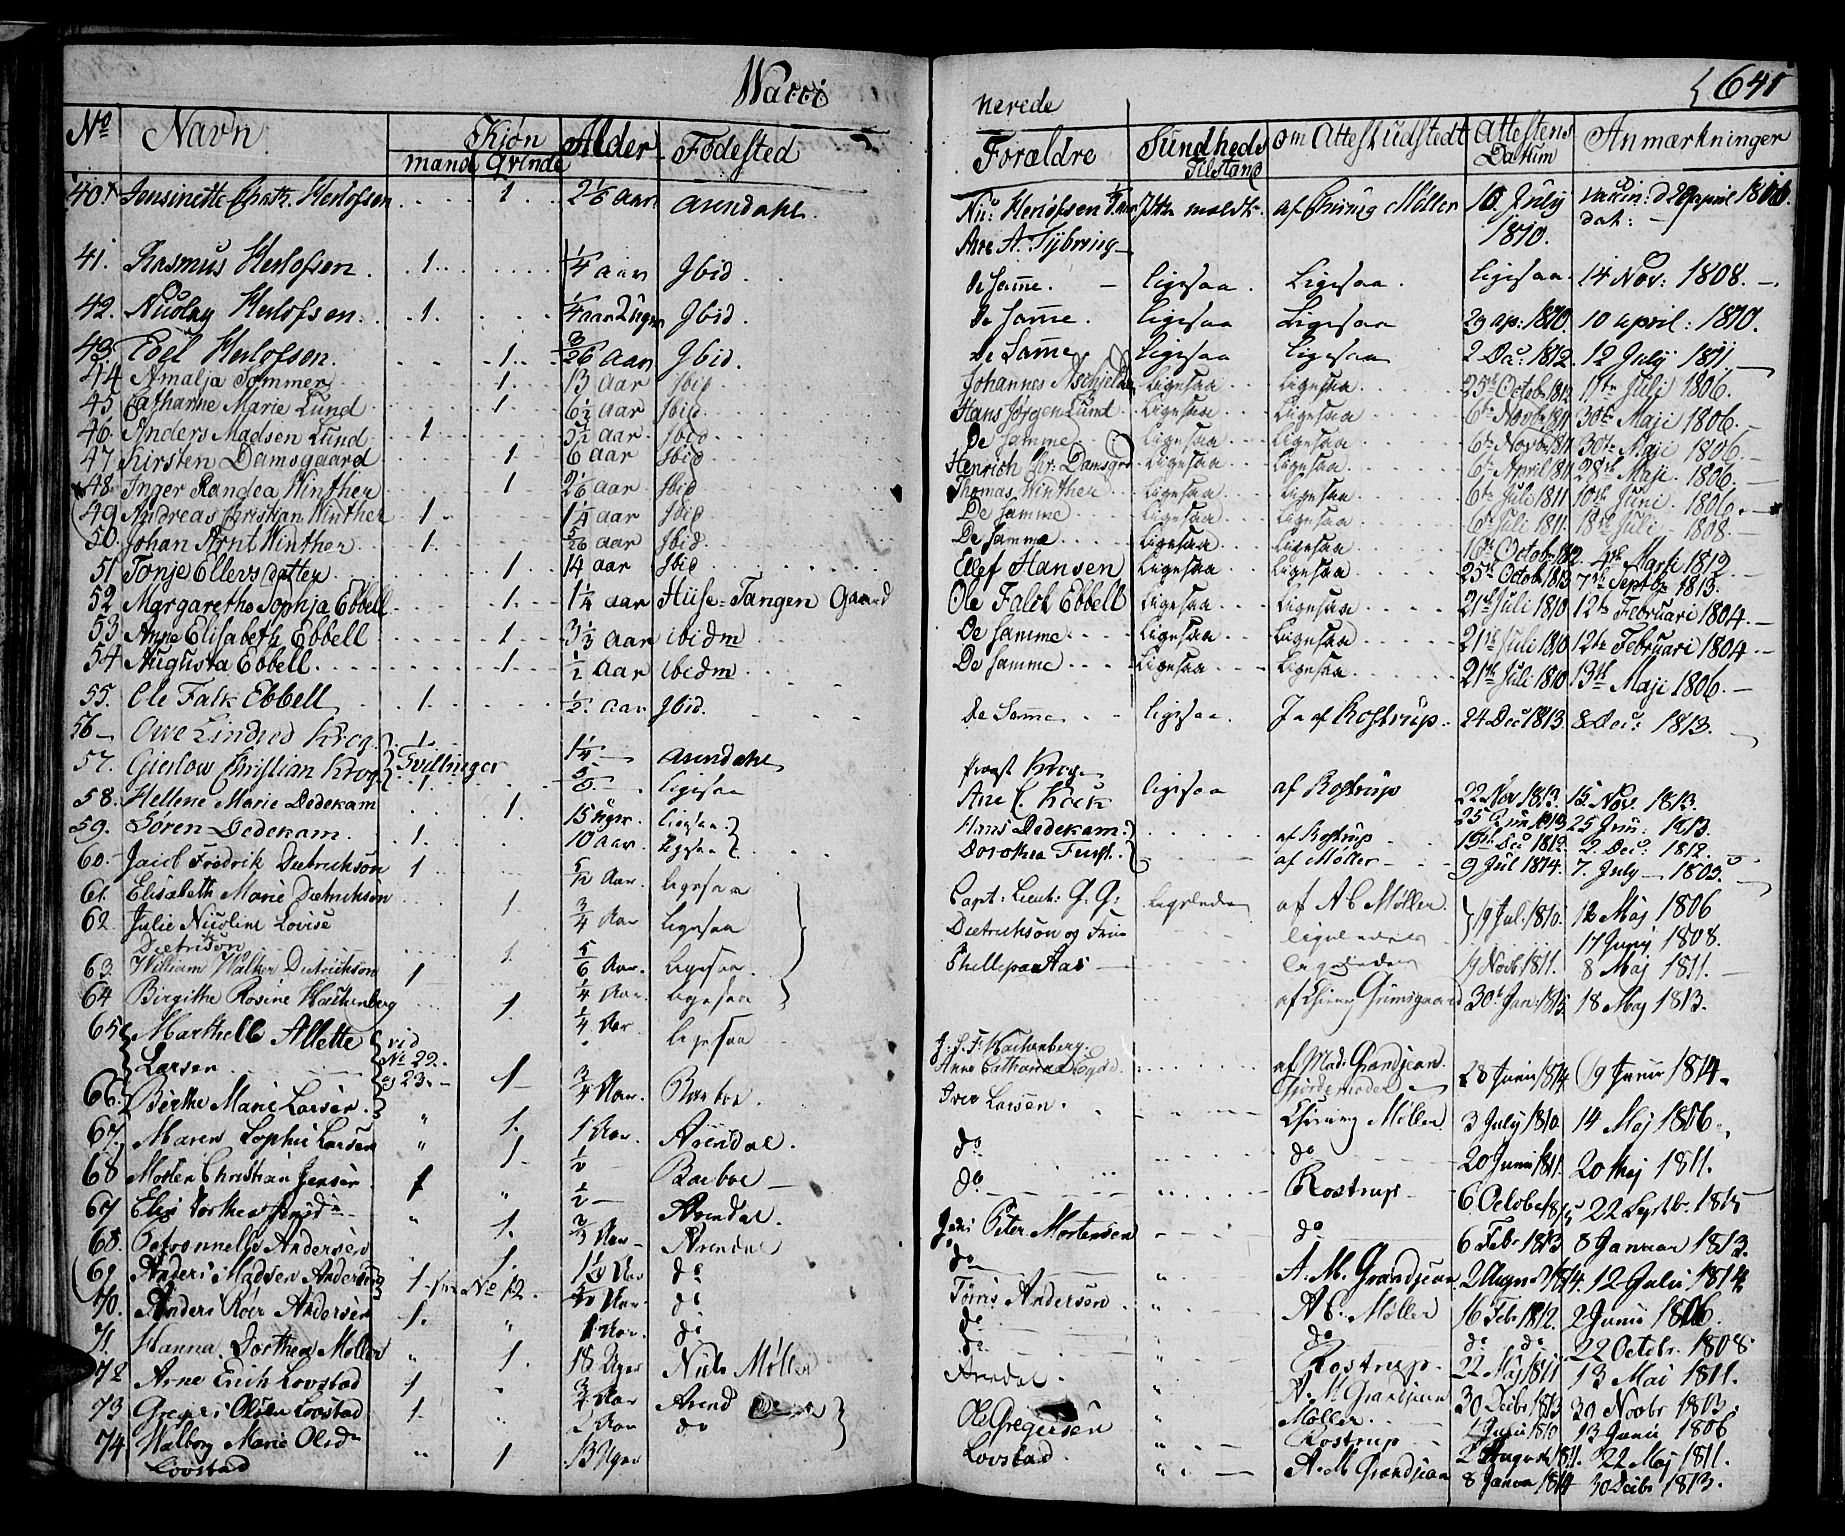 Wacci
nerede
641
No Navn Kjøn Alder Fødested Forældre Sundheds Tilstand om Attest udstedt Attestens Datum Anmærkninger
mand Qvinde
40. Jensinette Cath. Herlofsen 1. 2 1/6 aar Arendahl. Herlofsen af Møller 10 July 1810.
Ane A. Tybring
41. Rasmus Herlofsen. 1. 1/4 aar Ibid. de Samme. ligesaa. Ligesaa. Ligesaa 14 Nov: 1808.
42. Nicolay Herlofsen. 1. 1/4 aar Ibid. de Samme. ligesaa Ligesaa 29 ap: 1810. 10 april: 1810.
43. Edel Herlofsen. 1. 3/26 aar Ibid. de Samme. ligesaa ligesaa 2 Dec: 1812. 12 July 1811.
44 Amalja Sommer 1. 13 aar Ibid Johannes ligesaa ligesaa 25th Octobr 1812 11te Juli 1806.
45 Catharine Marie Lund 1. 6 1/2 aar Ibid Hans Jørgen Lund ligesaa ligesaa 6te Novbr 1811 30te Maji 1806.
46. Anders Madsen Lund 1. 5 1/2 aar Ibid De Samme ligesaa ligesaa 6te Novbr 1811 30te Maji 1806.
47 Kirsten Damsgaard 1 6 aar Ibid Henrich Chr: Damsgrd ligesaa ligesaa 6te April 1811 28th Maji 1806.
48. Inger Randea Winther 1 2 1/6 aar Ibid Thomas Winther ligesaa ligesaa 6te Juli 1811 10th Juni 1806.
49 Andreas Christian Winther 1. 1 1/4 aar Ibid De Samme ligesaa ligesaa 6te Juli 1811. 18th Juli 1808.
50. Johan Arnt Winther 1. 5/26 aar Ibid. De Samme ligesaa ligesaa 16th Octobr 1812. Marti 1812.
51 Tonje Ellersdatter 1 14 aar Ibid Ellef Hansen ligesaa ligesaa 25th Octobr 1813 7th Septbr 1813.
52 Margarethe Sophja Ebbell 1. 1 1/4 aar Huse-Tangen Gaard Ole Falck Ebbell ligesaa ligesaa 21th Juli 1810 12te Februari 1804.
53 Anne Elisabeth Ebbell 1 3 1/3 aar ibidm De Samme ligesaa ligesaa 21th Juli 1810 12te Februari 1804
54 Augusta Ebbell. 1 1/2 aar ibidm De Samme ligesaa ligesaa 21th Juli 1810 13th Maji 1806.
55. Ole Falk Ebbell 1. 1/2 aar Ibid. De Samme ligesaa. Ja af Rostrup. 24 Dec 1813. 8 Dec: 1813.
56 Ove Lindsed Krog. 1. 1/4 Arendahl
57. Gierlow Christian Krog Tvillinger 1. ligesaa Provst Krog
58. Hellene Marie Dedekam 1. 15 Uger ligesaa Ane C. Kock ligesaa af Rostrup 22 Nov 1813. 15 Nov. 1813.
59. Søren Dedekam. 1. 10 Aar. ligesaa Hans Dedekam. af Rostrup 25 Juni 1813. 25 Juni: 1813.
Dorothea Furst. af Møller 15th Dec 1812. 2 Dec: 1812.
60. Jacob Fredrik Dietrichson 1 Aar. ligesaa 9 Jul 1814. 7. July 1805.
61. Elisabeth Marie Dietrichson 1 3/4 Aar ligesaa Capt: Lieut: G. G: ligeleden af A C Møller 19 Jul. 1810. 12 Maj 1806
62. Julie Nicoline Lovise Dietrichson 1. 5/6 Aar. ligesaa. Dietrichson og Frue ligeleden 17 Junij 1808.
63. William Walker Dietrichson 1 1/4 Aar. ligesaa Aas ligeleden 19 Novb 1811. 8 Maj 1811.
64 Birgithe Rosine Hachenberg 1. 1/4 Aar ligesaa af Grimsgaard 30t Jan: 1815. 18 Maj 1813.
65 Marthelle Allette Larsen vid No 22. og 23. 1 3/4 Aar. Barboe. J. S. F. Hachenberg. Anne Catharina af Mad: Grandjean Gjordemoder 28 Junii 1814 19 Junii 1814.
66. Birthe Marie Larsen. " 1. 1 Aar. Arendal. Iver Larsen. Møller 3 July 1810. 14 Maj 1806.
67. Maren Sophie Larsen " 1 1/2 Barboe do do 20 Junii 1811. 20 Maj 1811.
68 Morten Christian Jensen 1 " 1/2 Arendal. do Rostrup 6 Octobr 1815 22 Septbr. 1815
67 Elin Dorthea " 1. 2/3 Aar Arendal Peter Mortensen do 6 Febr 1813 8 Januar 1813.
68. Petronelle Andersen 1. Aar do do A. M. Grandjean 2 August 1814. 12 Julii 1814.
69 Anders Madsen Andersen 1. No 12. Aar. do Tønis Andersen " A C. Møller 16 Febr 1812. 2 Junii 1806.
70. Anders Röer Andersen 1. " 1 Aar. do do do do do 22 Octobr. 1808
71. Hanna Dorthea Møller " 1. 18 Uger Niels Møller do Rostrup. 22 Maj 1811. 13 Mai 1811.
72 Arne Erich Lovstad 1 " 3/4 Aar Arend Arendal. " A. M. Grandjean 30 Decbr 1813 30 Novbr 1813.
73 Gregers Olsen Lovstad 1. " 2 Aar do Ole Gregersen Lovstad. " Møller. Junii 1810 13 Junii 1806
74 Walborg Marie Olsdr Lovstad " 1 13 Uger " Rostrup 2 August 1811. 22 Maj 1811.
" A. M Grandjean 8 Janua 1814 30 Decbr 1813.